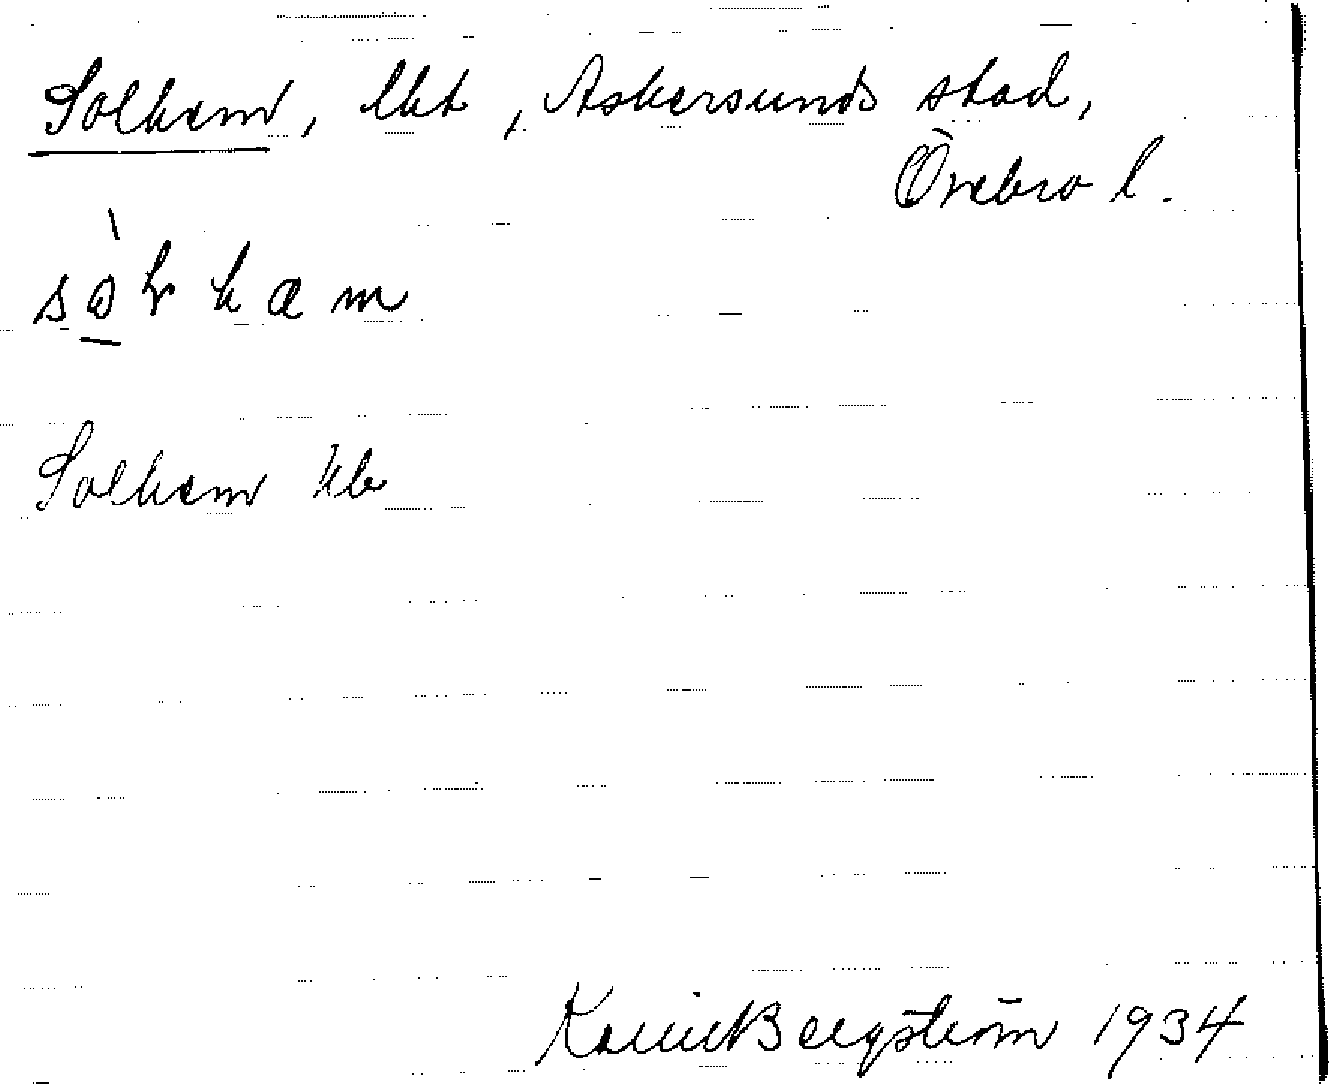 Solhem, lht, Askersunds stad,
Örebro l.
Solhem kb
Karin Bergström 1934